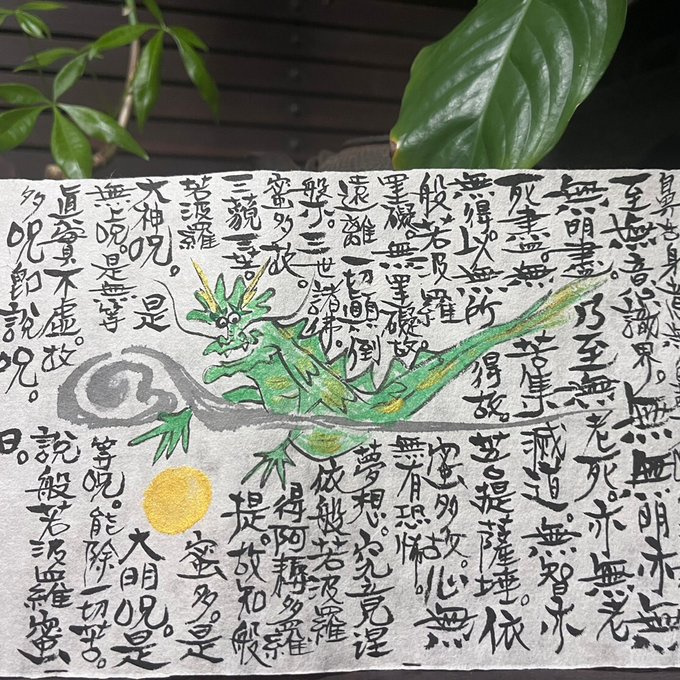 鼻舌身意
至無意識界。無無明亦無
無明盡。乃至無老死。亦無老
死盡。無苦集滅道。無智亦
無得。以無所得故。菩提薩埵。依
般若波羅蜜多故。心無
罣礙。無罣礙故。無有恐怖。
遠離一切顛倒夢想。究竟涅
槃。三世諸佛。依般若波羅
蜜多故。得阿耨多羅
三藐三菩提。故知般
若波羅蜜多。是
大神呪。是大明呪。是
無上呪。是無等等呪。能除一切苦。
眞實不虚。故説般若波羅蜜
多呪即説呪。曰。